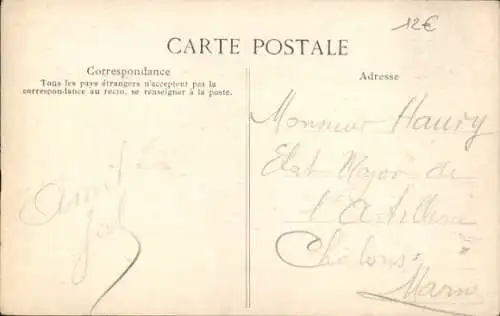 12€
CARTE POSTALE
Correspondance
Tous les pays étrangers n'acceptent pas la
correspondance au recto, se renseigner à la poste.
Adresse
Monsieur Haury
Etat Major de
l'Artillerie
Châlons s
Marne